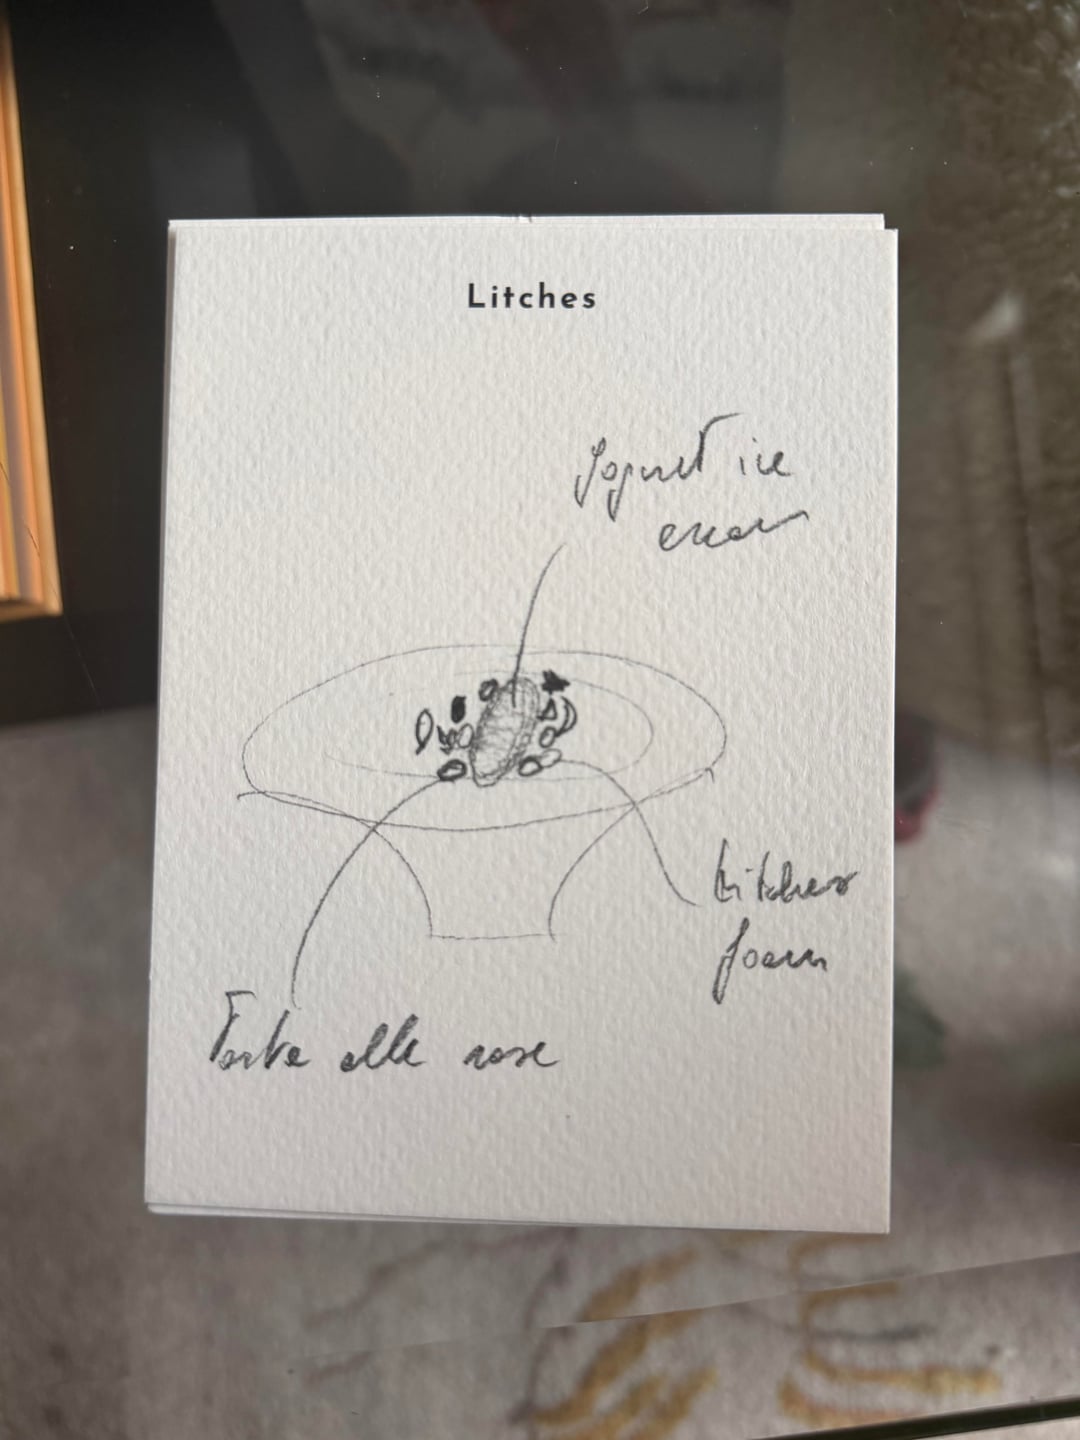 Litches
Jogurt ice
cream
Litches
foam
Torta alle rose